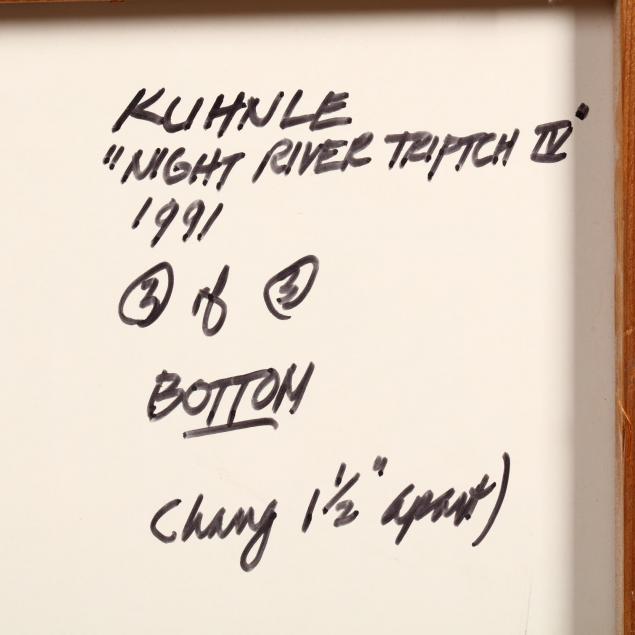 KUHNLE
"NIGHT RIVER TRIPTCH IV"
1991
3 of 3
BOTTOM
(hang 1 1/2" apart)